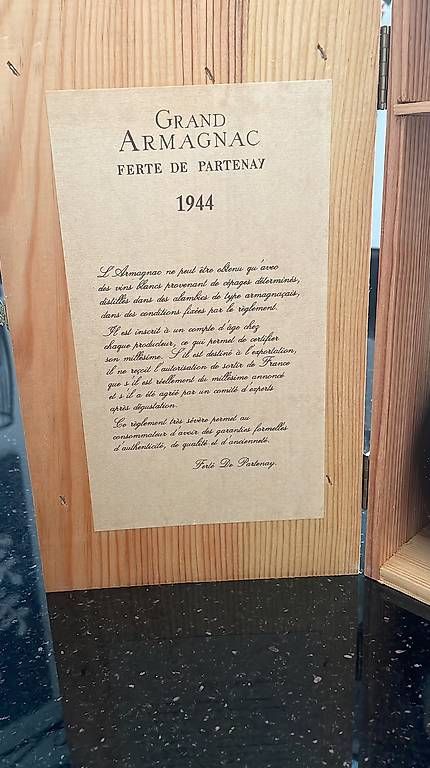 GRAND
ARMAGNAC
FERTE DE PARTENAY
1944
L'Armagnac ne peut être obtenu qu'avec
des vins blancs provenant de cépages déterminés,
distillés dans des alambics de type armagnaçais,
dans des conditions fixées par le règlement.
Il est inscrit à un compte d'âge chez
chaque producteur, ce qui permet de certifier
son millésime. S'il est destiné à l'exportation,
il ne reçoit l'autorisation de sortir de France
que s'il est réellement du millésime annoncé
et s'il a été agréé par un comité d'experts
après dégustation.
Ce règlement très sévère permet au
consommateur d'avoir des garanties formelles
d'authenticité, de qualité et d'ancienneté.
Ferté De Partenay.